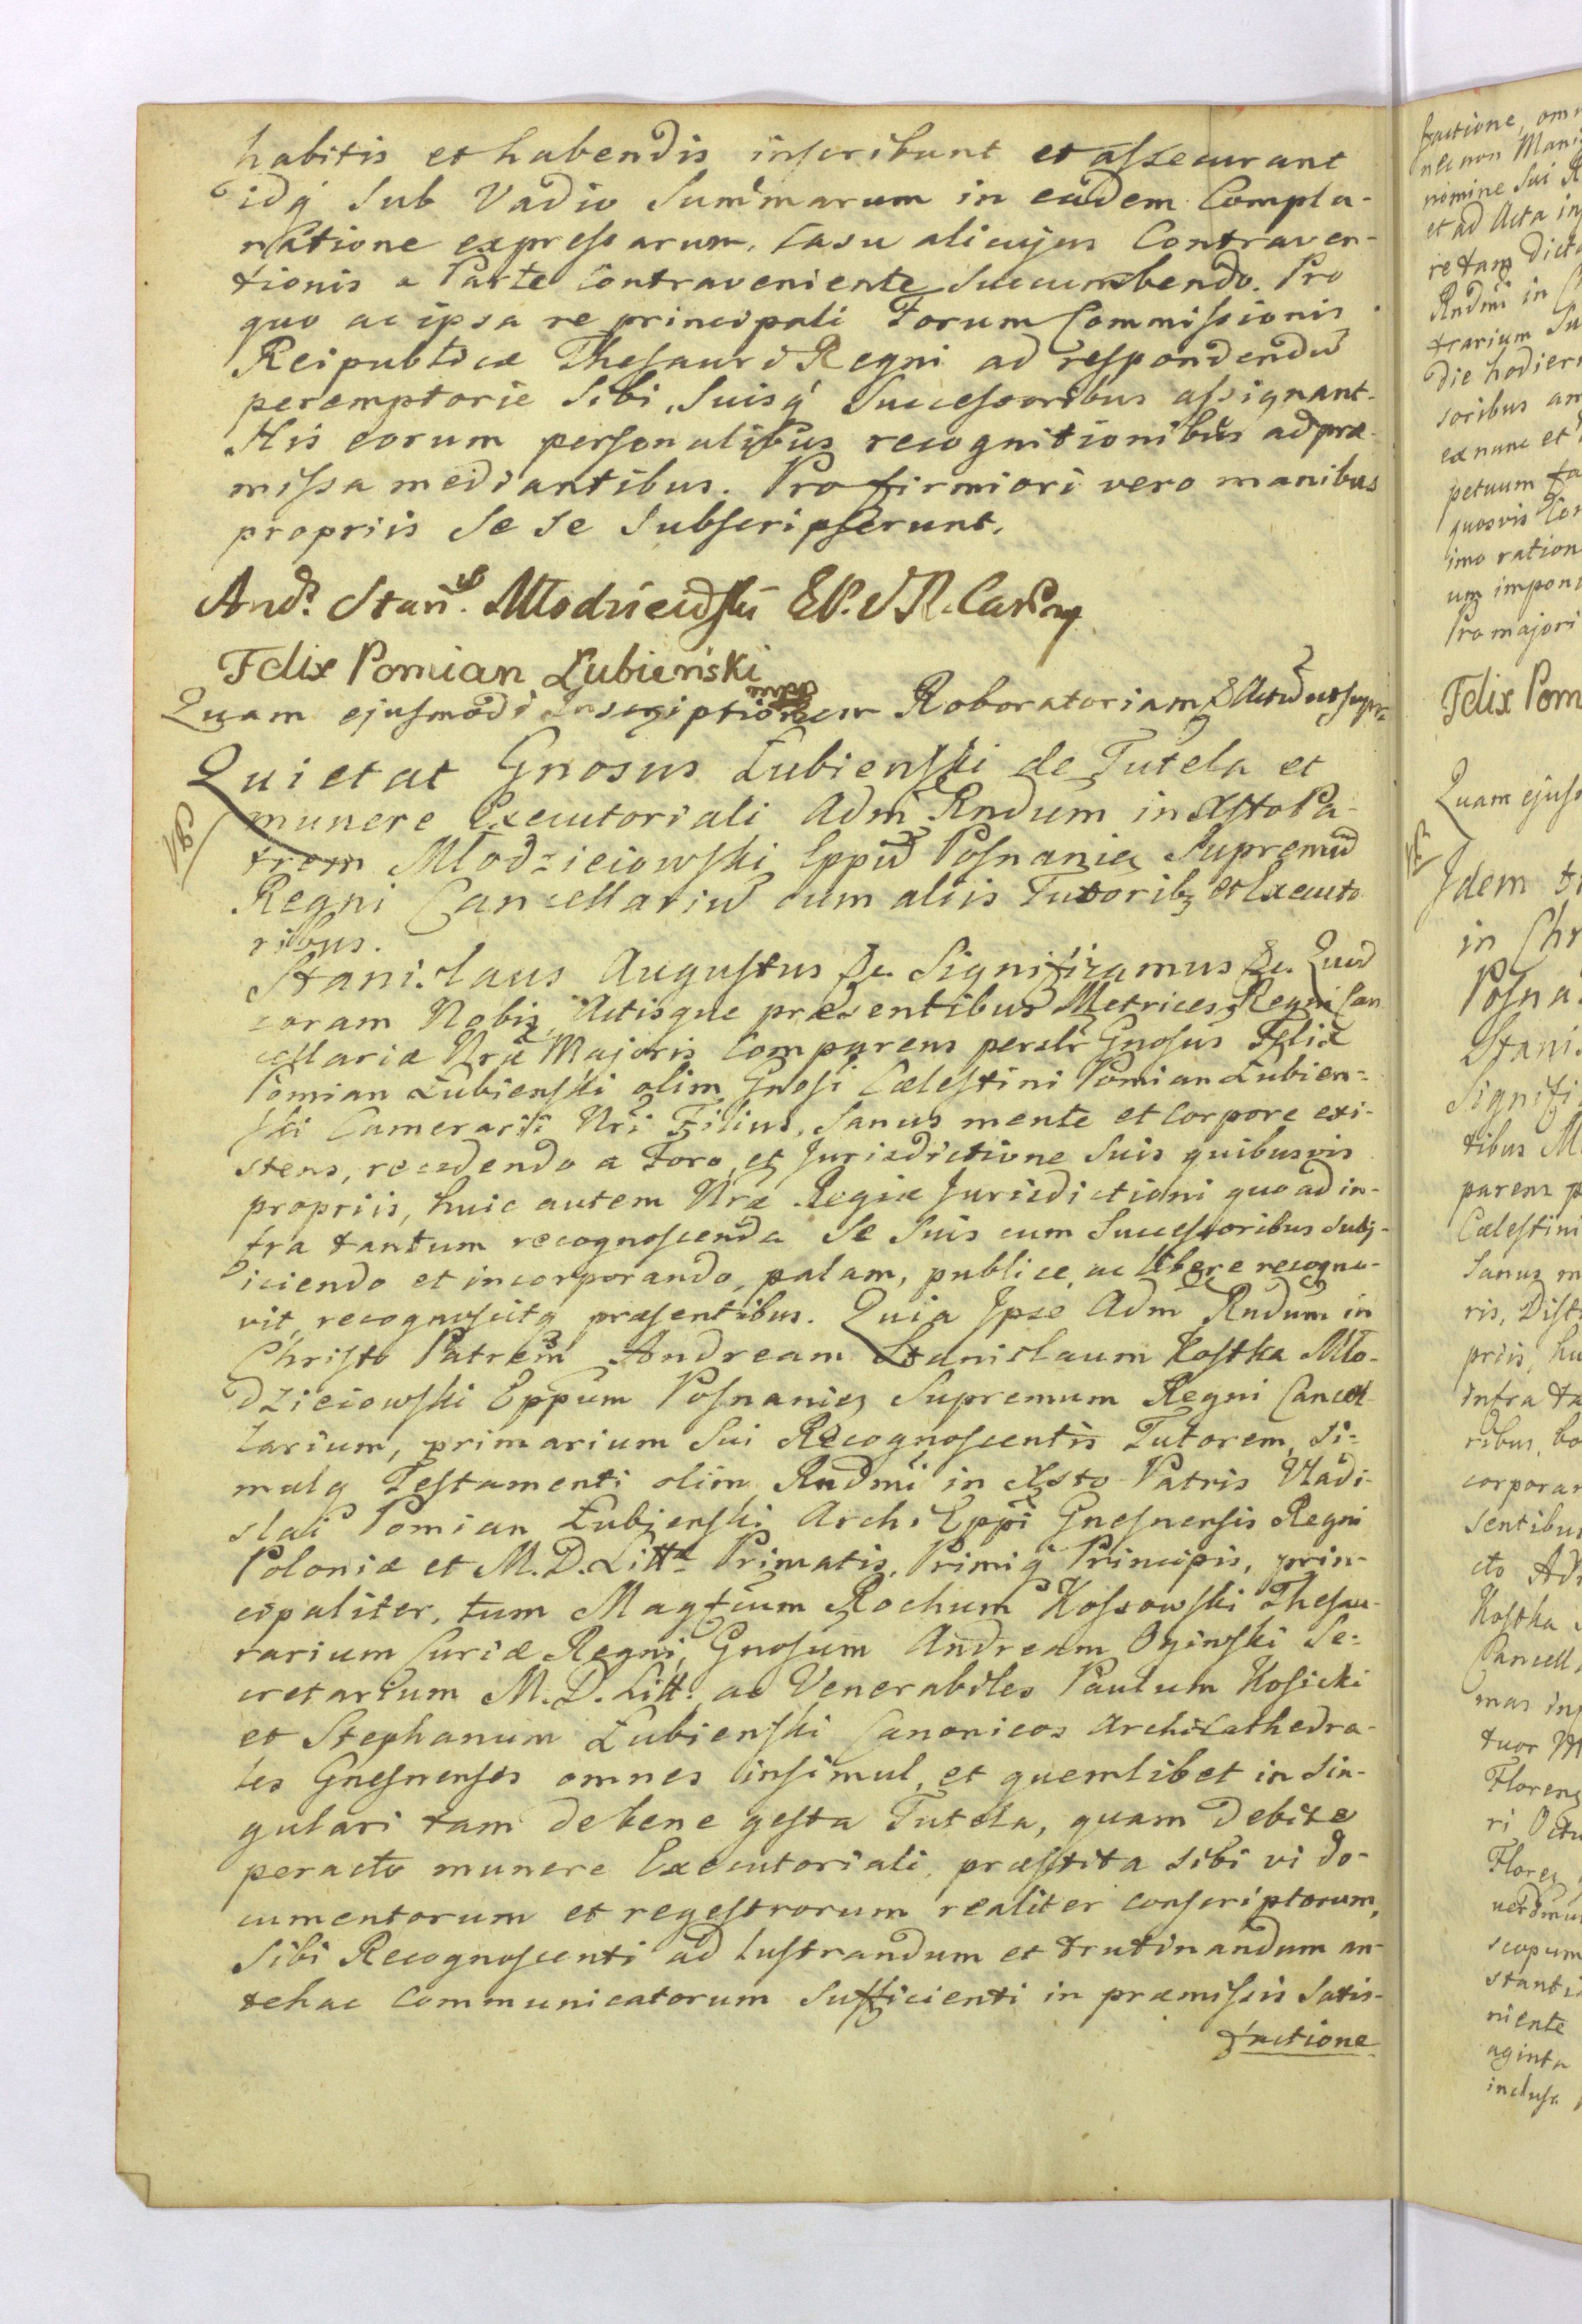 habitis et habendis inscribunt et assecurant
idq́ Sub Vadio Summarum in eadem Compla-
natione expressarum, Casu alicujus Contraven-
tionis a Parte Contraveniente Succumbendo. Pro
quo ac ipsa re principali Forum Commissionis
Reipublicæ Thesauri Regni ad respondendū
peremptorie Sibi, Suisq́ Successoribus assignant.
His eorum personalibus recognitionibus ad præ-
missa mediantibus. Pro firmiori vero manibus
propriis Se Se Subscripserunt.
Felix Pomian Łubieński
Quam ejusmodi Inscriptionem Roboratoriam &
Quietat Gnosus Łubienski de Tutela et
munere Executoriali Adm Rndum in Xsto Pa-
trem Młodzieiowski Eppū Posnanien Supremū
Regni Cancellariū cum aliis Tutoribz et Executo
ribus.
Stanislaus Augustus &c. Significamus &c. Quod
coram Nobis, Actisque præsentibus Metrices Regni Can
cellariæ Nræ Majoris Comparens persltr Gnosus Felix
Pomian Łubienski olim Gnosi Cælestini Pomian Łubien-
ski Camerarii Nri Filius, Sanus mente et Corpore exi-
stens, recedendo a Foro, et Jurisdictione Suis quibusvis
propriis, huic autem Nræ Regiæ Jurisdictioni quo ad in-
fra tantum recognoscenda Se Suis cum Successoribus subj-
iciendo et incorporando, palam, publice, ac libere recogno-
vit, recognoscitq præsentibus. Quia Ipse Adm Rndum in
Christo Patrem Andream Stanislaum Kostka Mło-
dzieiowski Eppum Posnanien Supremum Regni Cancel-
larium, primarium Sui Recognoscentis Tutorem, Si-
mulq Testamenti olim Rndmi in Xsto Patris Vladi-
slai Pomian Łubienski Archi Eppi Gnesnensis Regni
Poloniæ et M. D. Littæ Primatis, Primiq́ Principis, prin-
cipaliter, tum Magfcum Rochum Kossowski Thesau-
rarium Curiæ Regni, Gnosum Andream Oginski Se-
cretarium M. D. Litt: ac Venerabiles Paulum Kosicki
et Stephanum Łubienski Canonicos ArchiCathedra-
les Gnesnenses omnes insimul, et quemlibet in Sin-
gulari tam de bene gesta Tutela, quam debite
peracto munere Executoriali, præstita sibi vi do-
cumentorum et regestrorum realiter conscriptorum,
Sibi Recognoscenti ad lustrandum et trutinandum an-
tehac Communicatorum Sufficienti in præmissis Satis-
factione
Felix Pom
Quam ejus
Idem
in Chr
Posna
Stani
Signifi
tibus M
parens p
Cælestini
Sanus m
ris, Dist
priis, hu
infra ta
ribus, bo
corporan
sentibus
cto Ad
Kostka
Cancell
mas in
tuor M
Floren
ri Octu
Flore
scopum
stanti
niente
aginta
inclusa